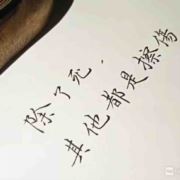 除了死，
其他都是擦傷